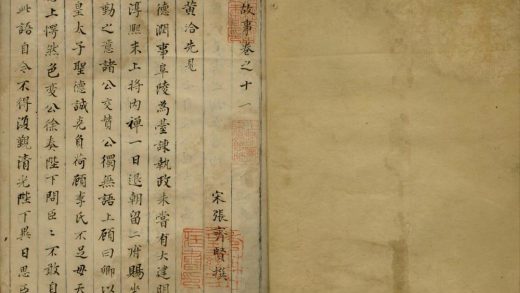 故事卷之十一
宋張齊賢撰
黃洽先見
德潤事阜陵為臺諫執政未嘗有大建明
淳熙末上將內禪一日退朝留二府賜坐
勤之意諸公交贊公獨無語上顧曰卿以
皇太子聖德誠克負荷顧李氏不足母天
上愕然色變公徐奏陛下問臣〻不敢自
此語自今不得復觀清光陛下異日思臣